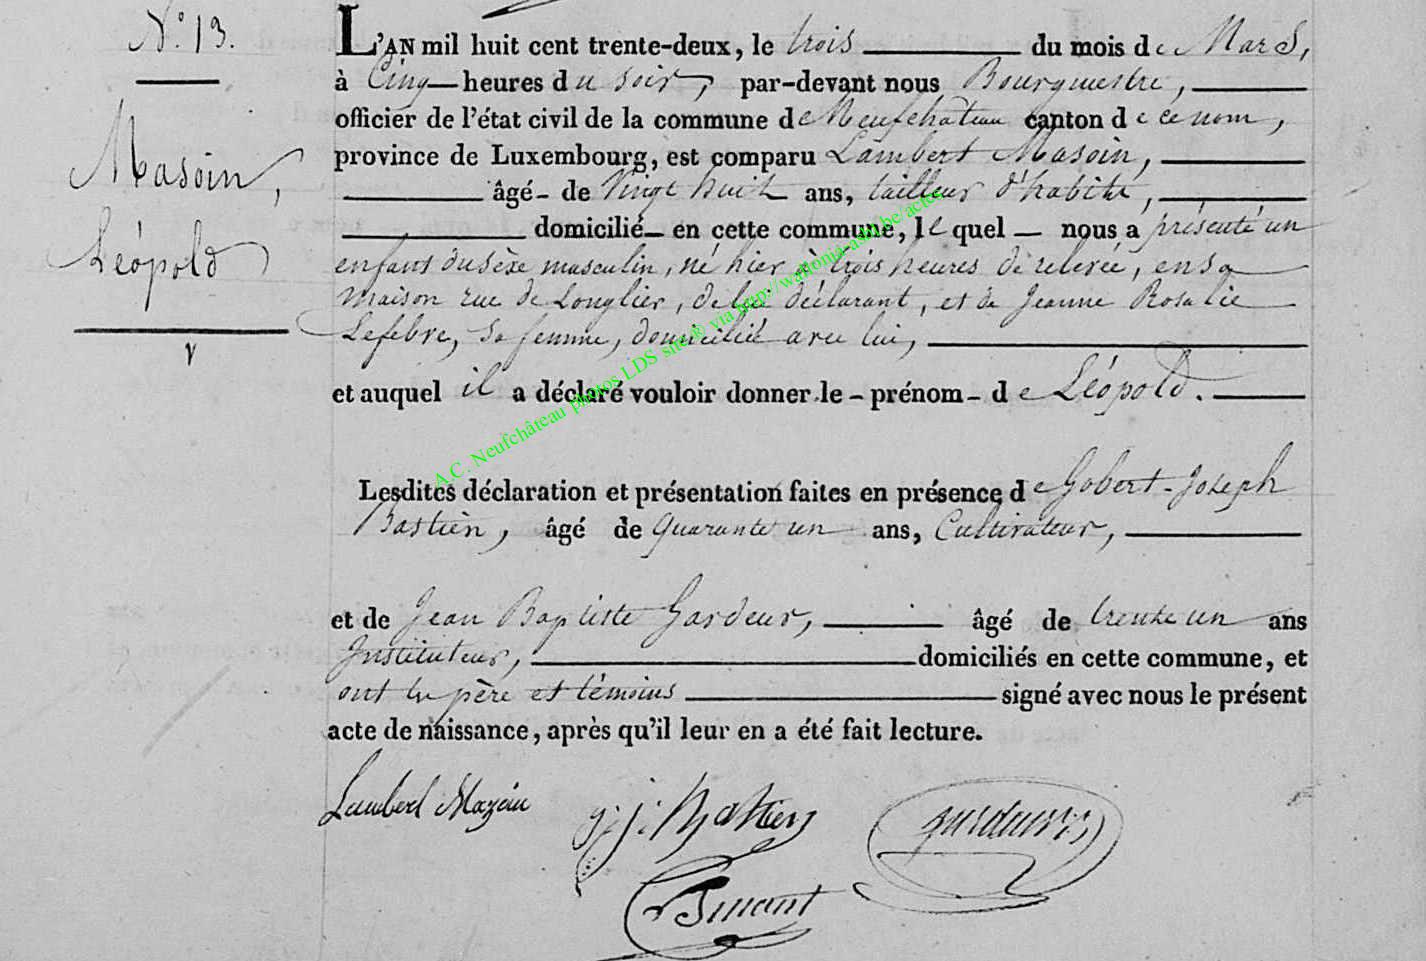 N.° 13.
Masoin,
Léopold
L'AN mil huit cent trente-deux, le trois du mois de Mars,
à Cinq heures du soir, par-devant nous Bourgmestre,
officier de l'état civil de la commune de Neufchâteau canton de ce nom,
province de Luxembourg, est comparu Lambert Masoin,
âgé de Vingt huit ans, tailleur d'habits,
domicilié en cette commune, lequel nous a présenté un
enfant du sexe masculin, né hier à trois heures de relevée, en sa
maison rue de Longlier, de lui déclarant, et de Jeanne Rosalie
Lefebvre, sa femme, domiciliée avec lui,
et auquel il a déclaré vouloir donner le prénom de Léopold.
Lesdites déclaration et présentation faites en présence de Gobert-Joseph
Bastien, âgé de quarante un ans, Cultivateur,
et de Jean Baptiste Gardeur, âgé de trente un ans
Instituteur, domiciliés en cette commune, et
ont les père et témoins signé avec nous le présent
acte de naissance, après qu'il leur en a été fait lecture.
Lambert Mazoin g. j. Bastien gardeur
A.C. Neufchâteau photos LDS site ® via http://wallonia-asbl.be/actes